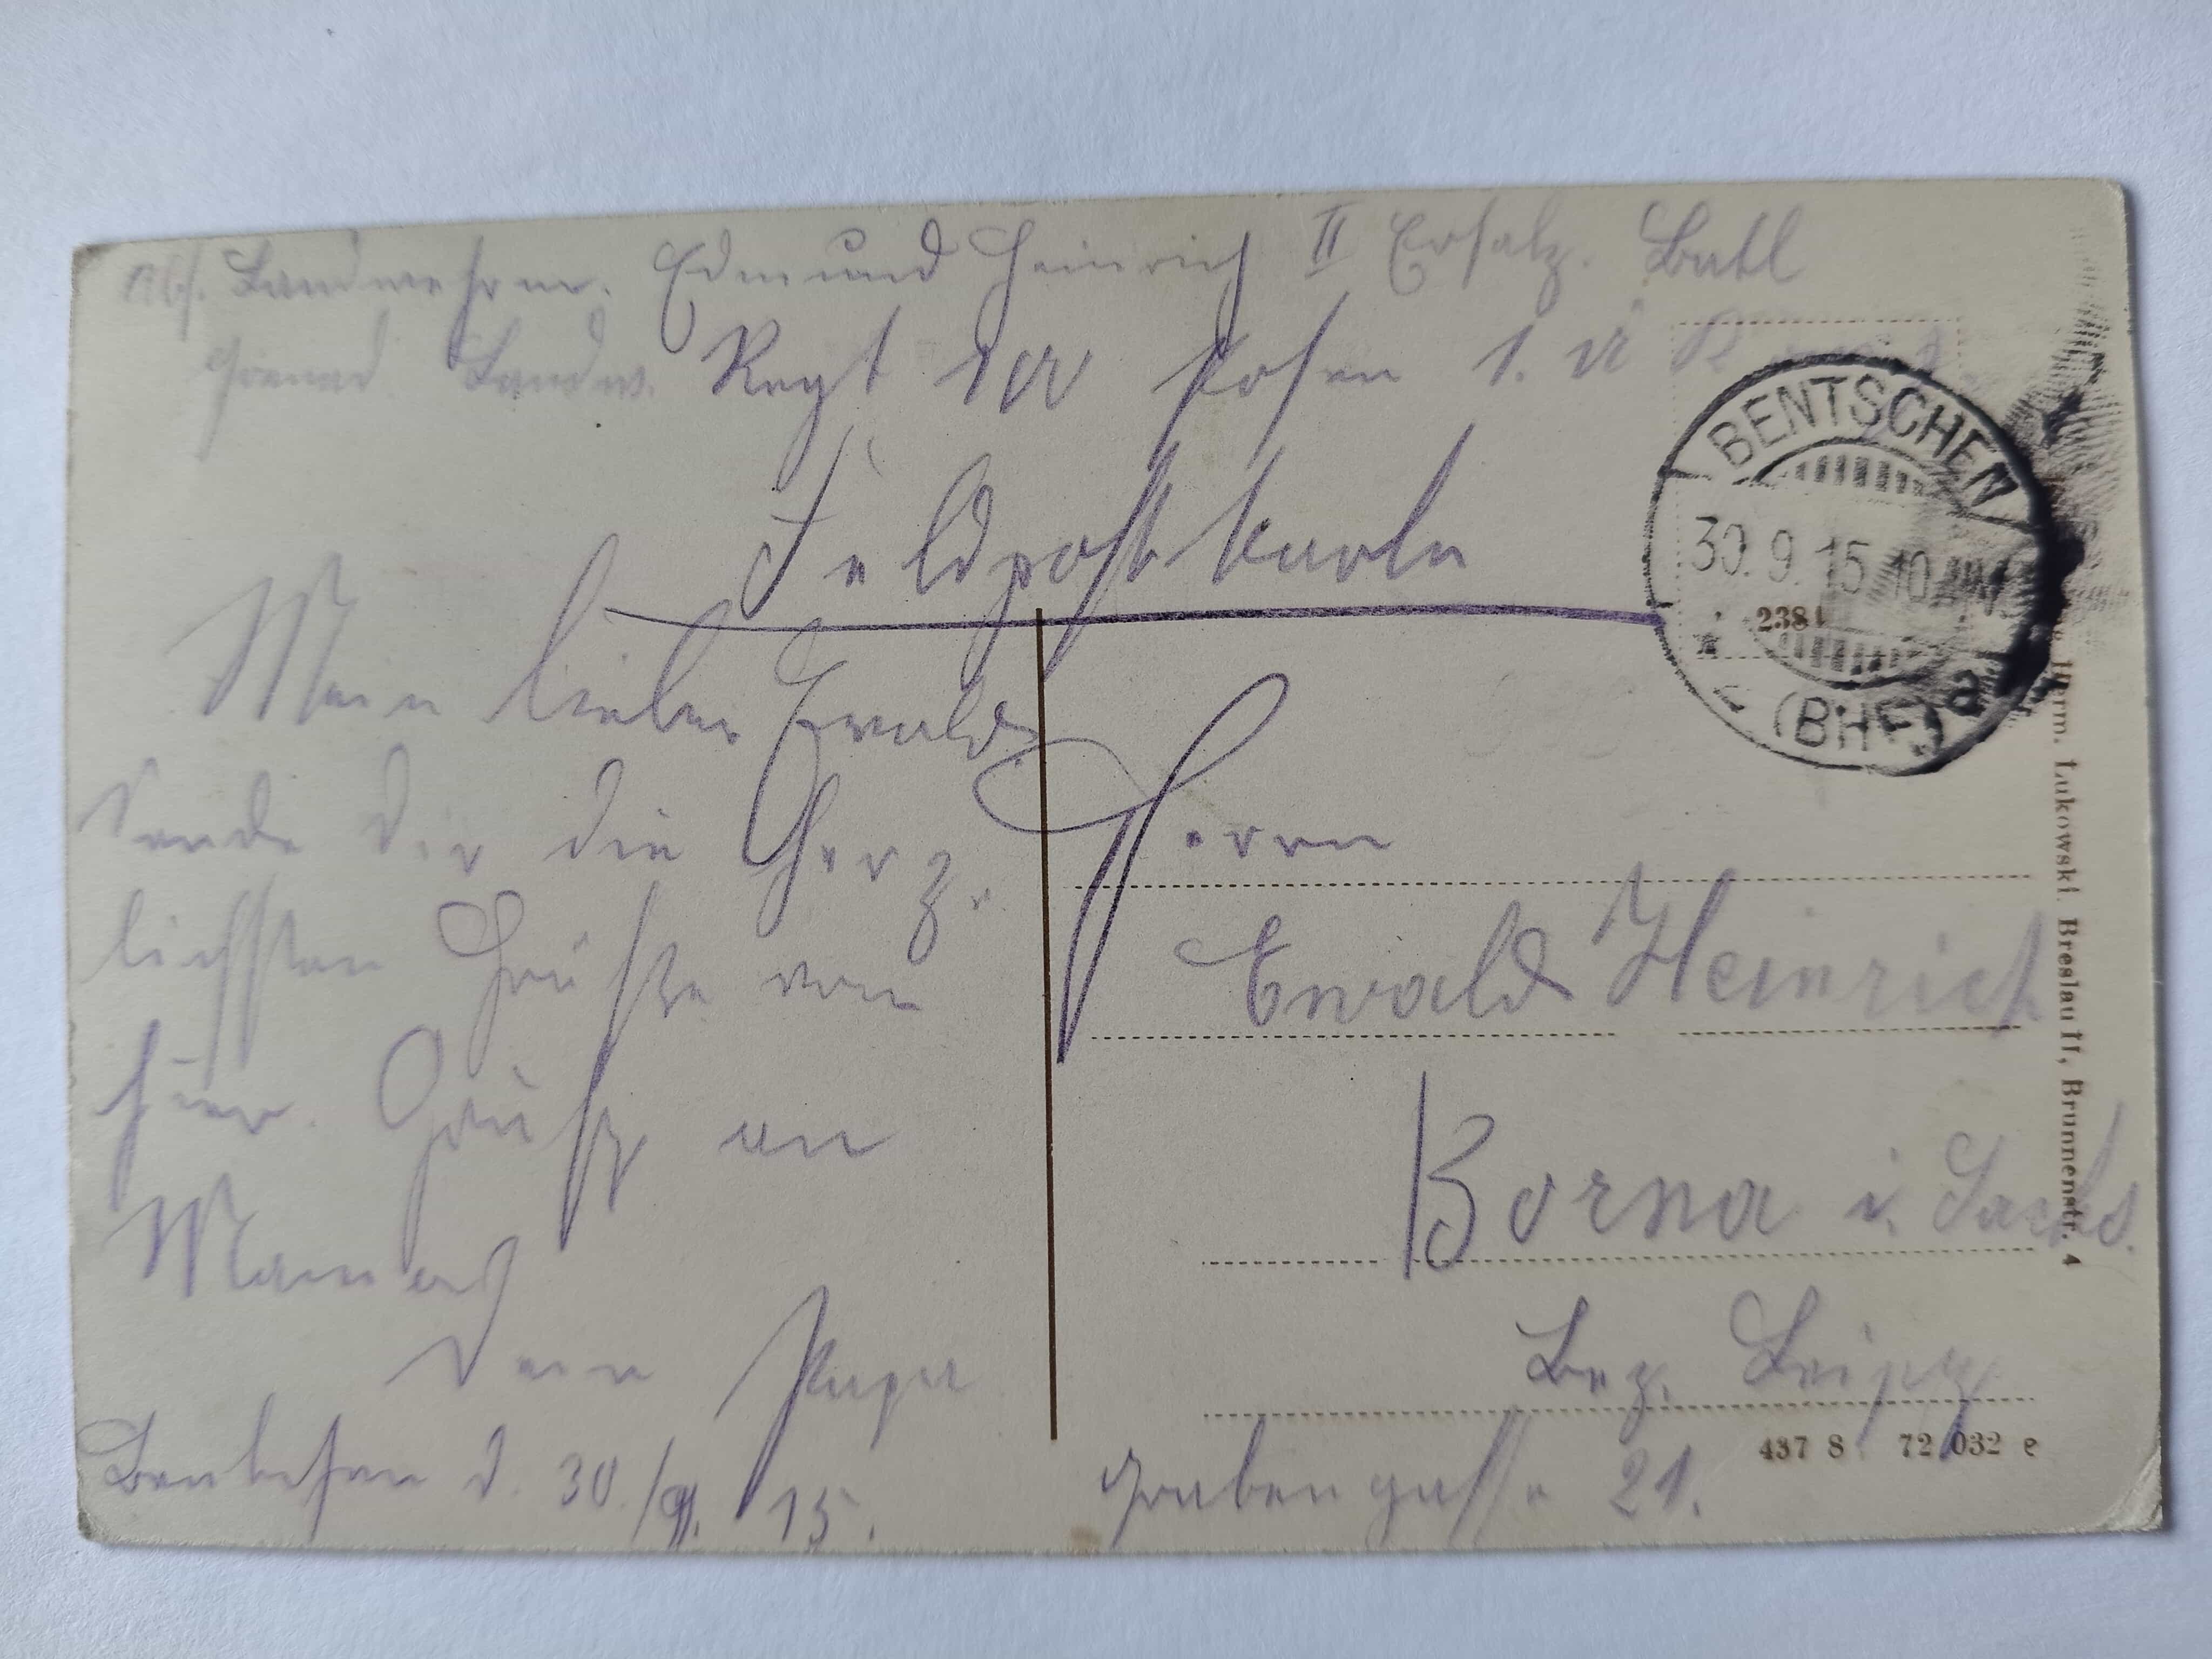 Abs. Landwehrm. Edmund Heinrich II Ersatz. Batl
Grenad. Landw. Regt der Posen 1. u
Feldpostkarte
BENTSCHEN
30.9.15 10
2381
(BHF.) a
Mein lieber Ewald
sende dir die herz-
lichsten Grüße von
hier. Grüße an
Mama
Dein Papa
Bentschen d. 30./9. 15.
Herrn
Ewald Heinrich
Borna i. Sachs.
Bez. Leipz
Grabengasse 21.
437 S 72 032 e
Herm. Lukowski. Breslau II, Brunnenstr. 4